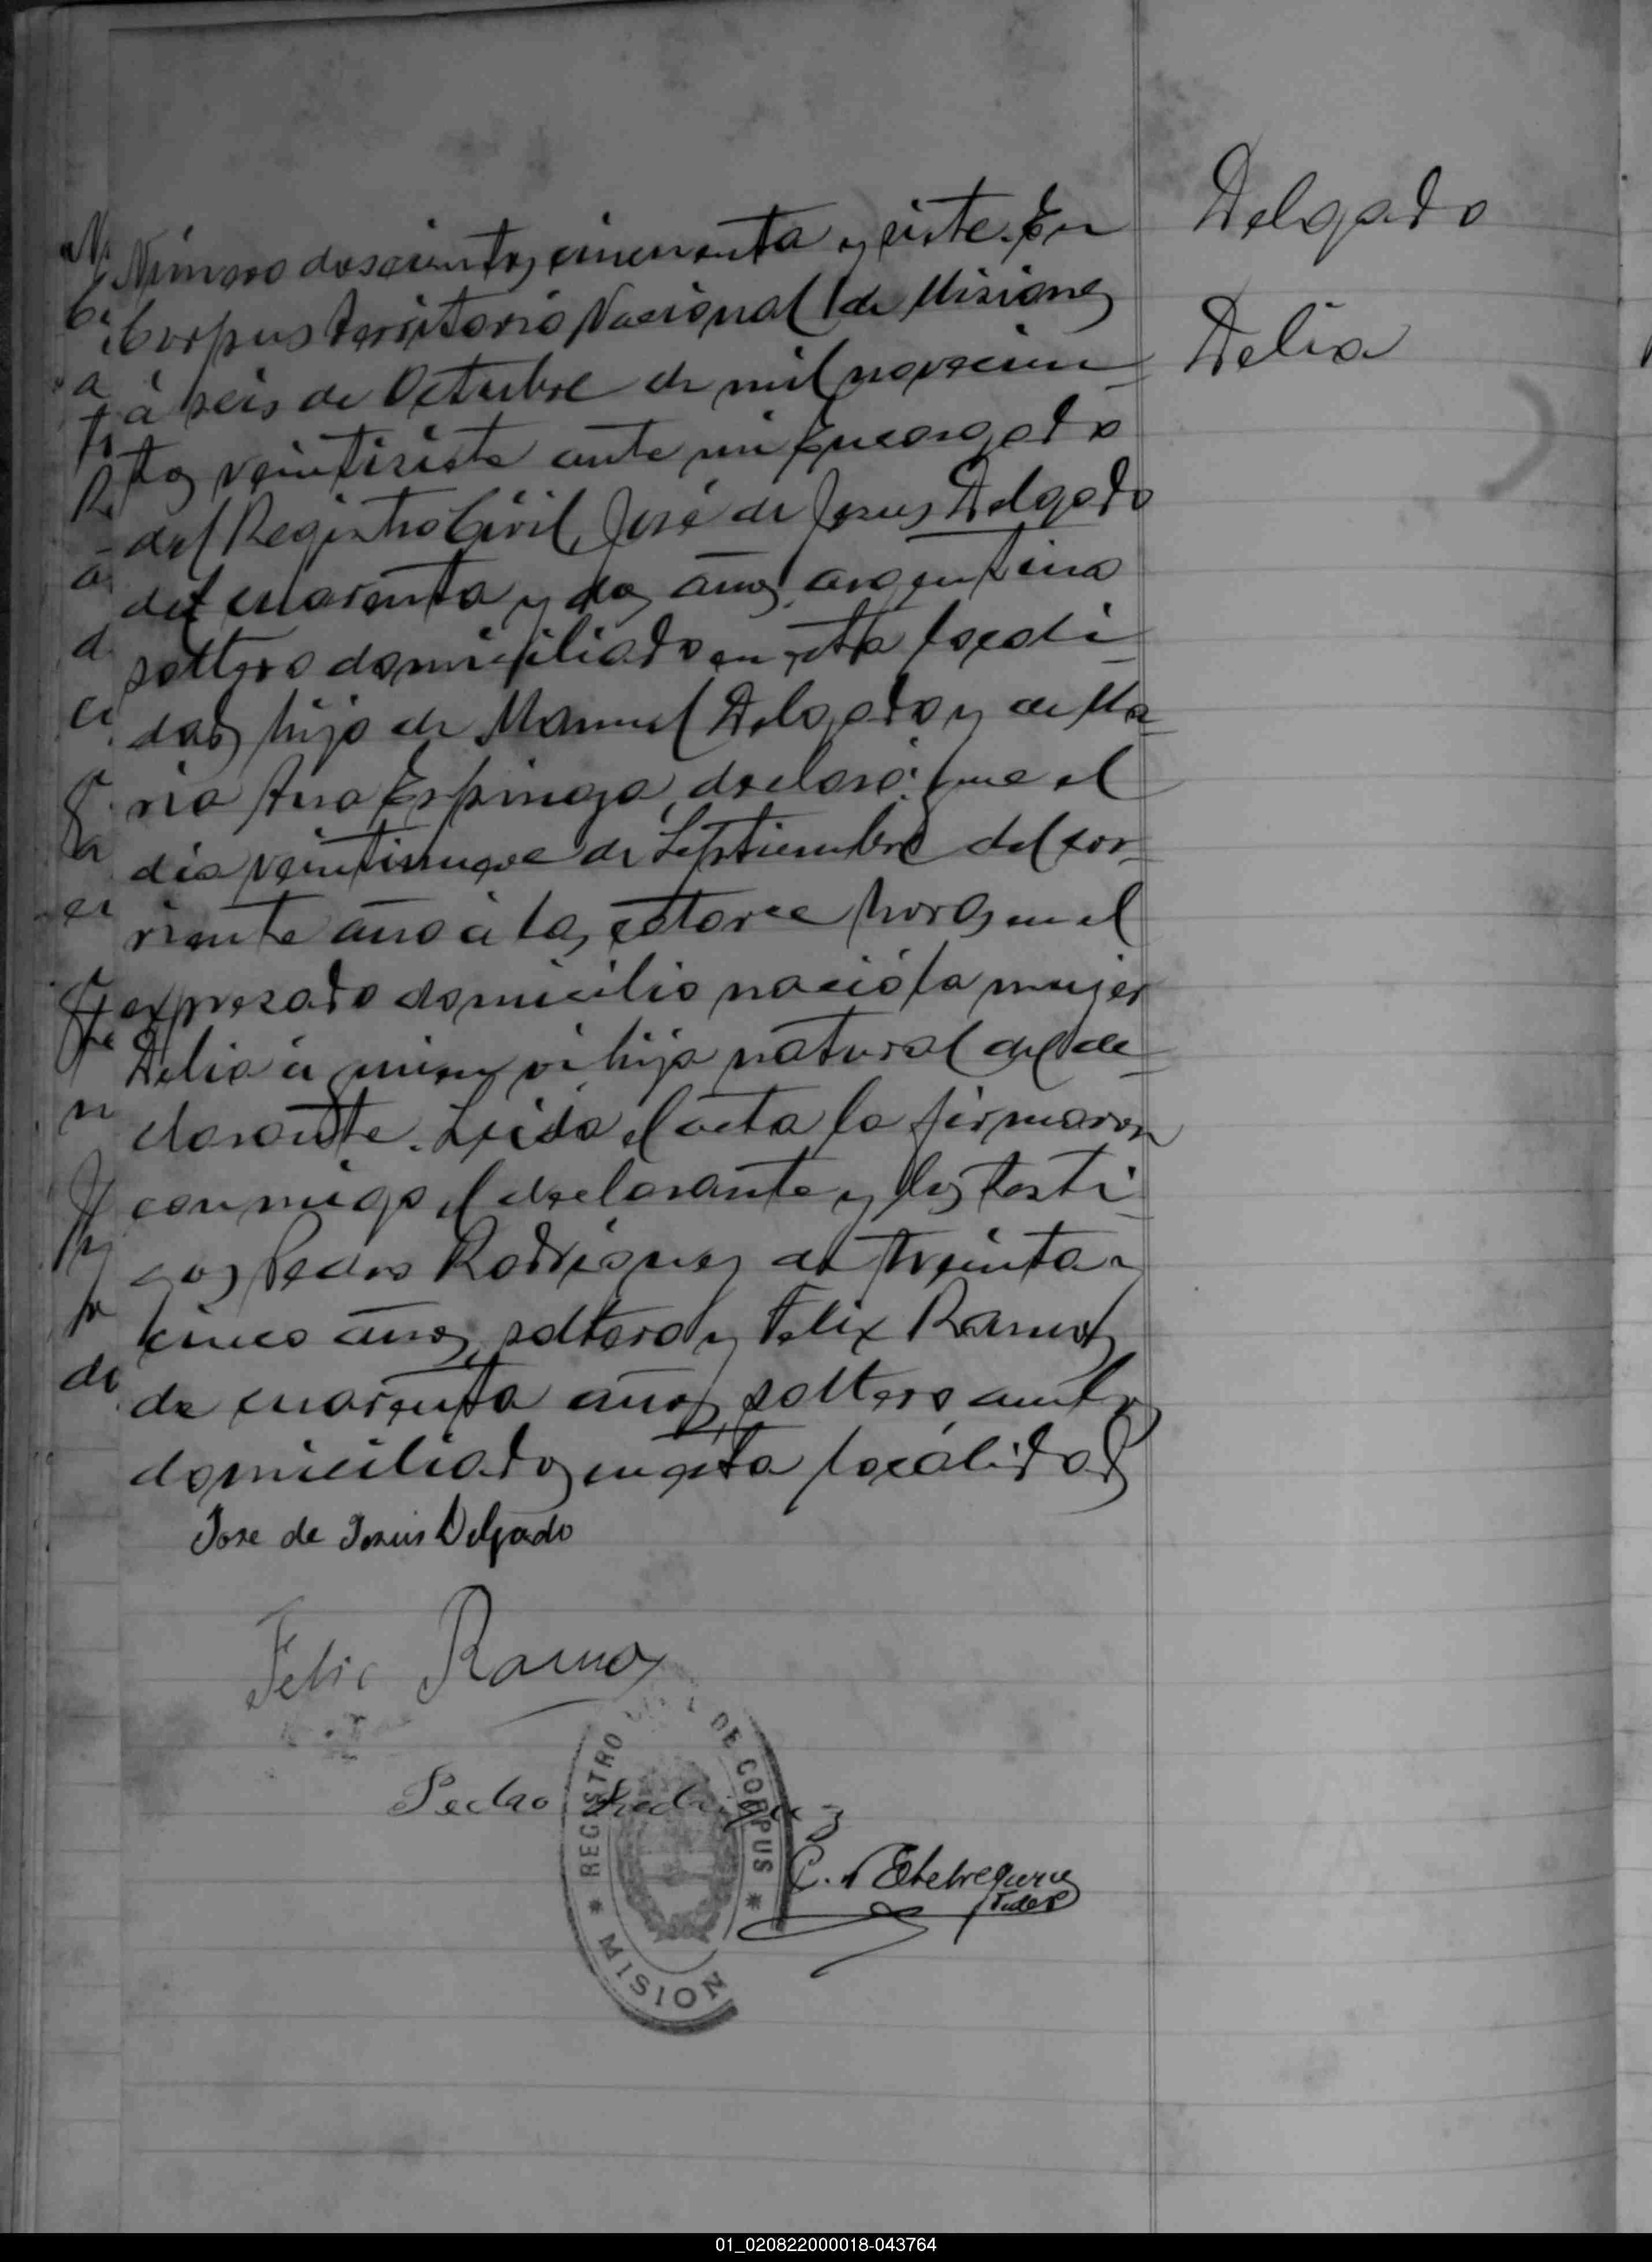 Delgado
Delia
Número doscientos cincuenta y siete. En
Corpus Territorio Nacional de Misiones
á seis de Octubre de mil novecien-
tos veintisiete ante mi Encargado
del Registro Civil, José de Jesus Delgado
de cuarenta y dos años, argentino
soltero domiciliado en esta locali-
dad, hijo de Manuel Delgado y de Ma-
ria Ana Espinoza, declaró: que el
dia veintinueve de Septiembre del cor-
riente año á las catorce horas en el
expresado domicilio nació la mujer
Delia á quien vi hija natural del de-
clarante. Leida el acta la firmaron
conmigo el declarante y los testi-
gos Pedro Rodriguez de treinta y
cinco años, soltero y Felix Ramos
de cuarenta años, soltero ambos
domiciliados en esta localidad
Jose de Jesus Delgado
Felix Ramos
Pedro Rodriguez
REGISTRO DE CORPUS
MISION
C. Etchegaray
01_020822000018-043764